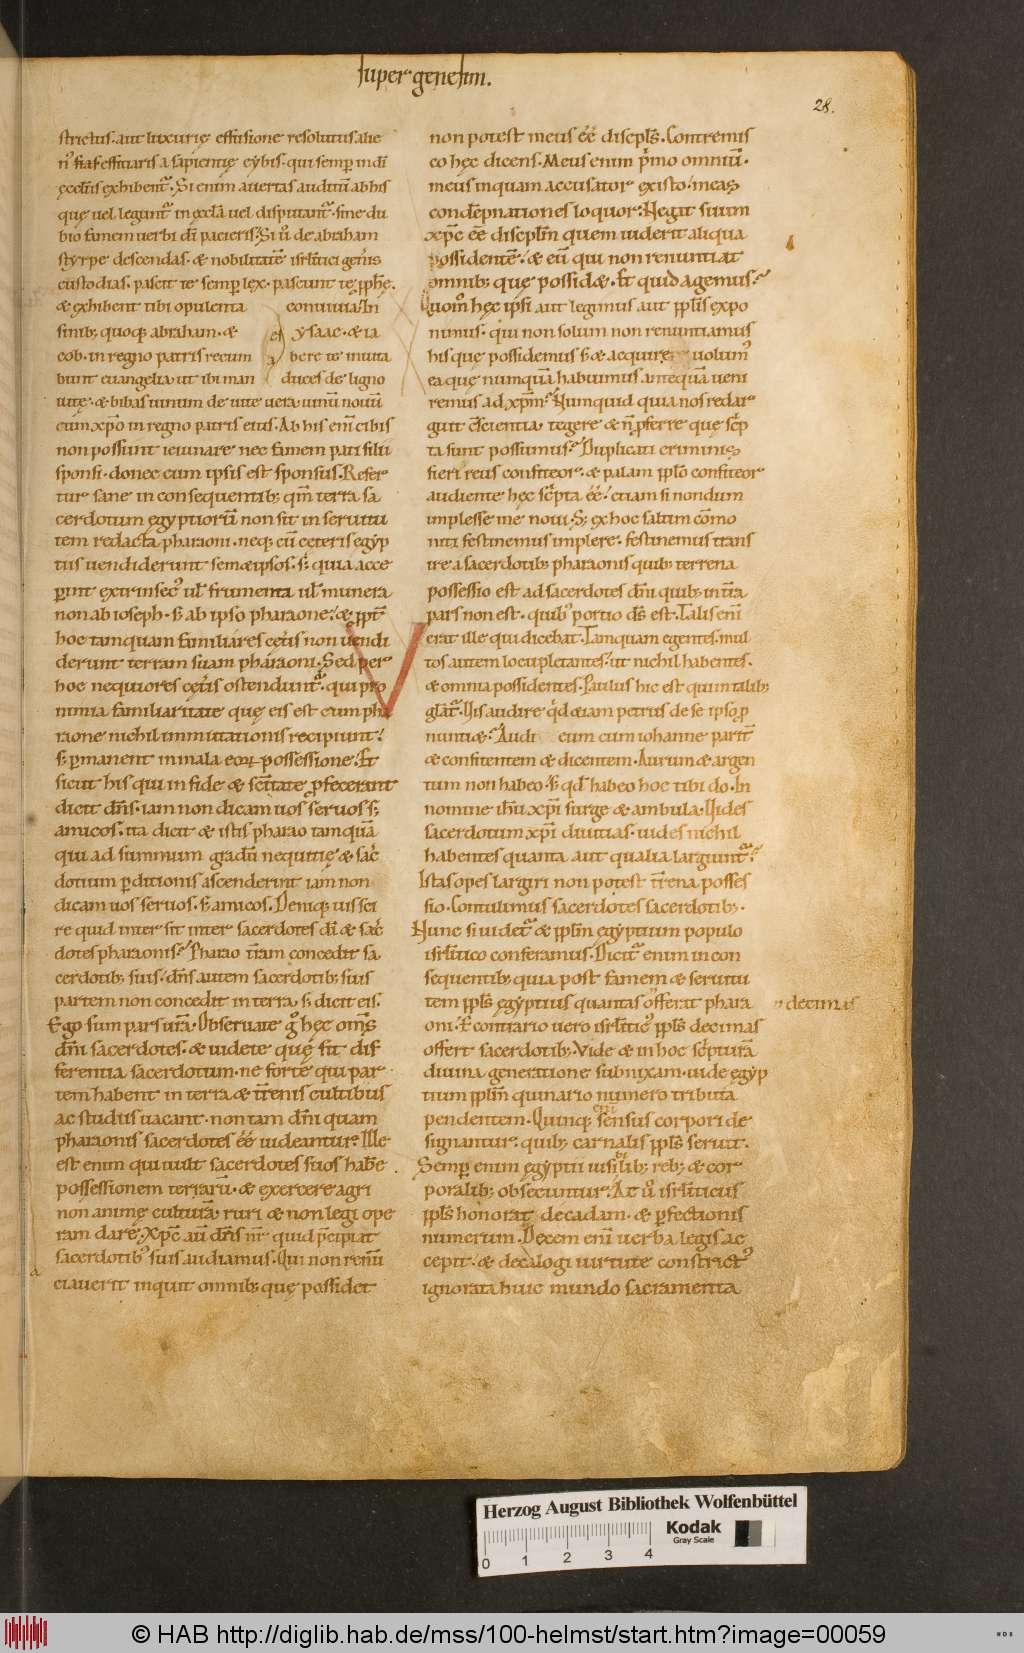 super genesim.
28.
strictus. aut luxurię effusione resolutus. alie
n' fias effitiaris a sapientię cybis. qui semp in di
ęcclis exhibent. Si enim avertas auditū ab his
quę uel legunt in ęccla uel disputant. sine du
bio famem uerbi di pacieris. Si u de abraham
styrpe descendas. & nobilitatē isrlitici genis
custodias. pascit te semp lex. pascunt te pphę.
& exhibent tibi opulenta conuiuia. In
sinib; quoq; abraham. & ysaac. & ia
cob. in regno patris recum bere te inuita
bunt euangelia. ut ibi man duces de ligno
uitę. & bibas uinum de uite uera uinū nouū
cum xpo in regno patris eius. Ab his eni cibis
non possunt ieiunare nec famem pati filii
sponsi. donec cum ipsis est sponsus. Refer
tur sane in consequentib; qm terra sa
cerdotum ęgyptiorū non sit in seruitu
tem redacta pharaoni. neq; cū ceteris egyp
tus uendiderunt semeipsos. s; quia acce
perint extrinsec' ul frumenta ul munera
non ab ioseph. s; ab ipso pharaone. & ppt
hoc tamquam familiares cetis non uendi
derunt terram suam pharaoni. Sed per
hoc nequiores cetis ostendunt. qui pro
nimia familiaritate quę eis est cum pha
raone nichil immutationis recipiunt.
s; pmanent in mala eor possessione. Et
sicut his qui in fide & scitate pfecerunt
dicit dns. iam non dicam uos seruos s;
amicos. ita dicit & istis pharao tamquā
qui ad summum gradū nequitię & sac
dotium pditionis ascenderint iam non
dicam uos seruos. s; amicos. Denique uis sci
re quid inter sit inter sacerdotes di & sac
dotes pharaonis? Pharao tram concedit sa
cerdotib; suis. dns autem sacerdotib; suis
partem non concedit in terra, s; dicit eis.
Ego sum pars ura. Obseruate g hęc oms
dni sacerdotes. & uidete quę sit dif
ferentia sacerdotum. ne forte qui par
tem habent in terra & trenis cultibus
ac studiis uacant. non tam dni quam
pharaonis sacerdotes ee uideantur. Ille
est enim qui uult sacerdotes suos habe
possessionem terrarū. & exercere agri
non animę culturā. ruri & non legi ope
ram dare. Xpc au dns nr quid pcipiat
sacerdotib' suis audiamus. Qui non renū
ciauerit inquit omnib; quę possidet
non potest meus ee discpls. Contremis
co hęc dicens. Meus enim pmo omniū.
meus inquam accusator existo. meas
condēpnationes loquor. Negat suum
xpc ee discplm quem uiderit aliqua
possidentē. & eū qui non renuntiat
omnib; quę possid&. Et quid agemus?
Quom hęc ipsi aut legimus aut pplis expo
nimus. qui non solum non renuntiamus
his quę possidemus s; & acquirere uolum'
ea quę numquā habuimus antequā ueni
remus ad xpm? Numquid quia nos redar
guit cscientia. tegere & n pferre quę scp
ta sunt possumus? Duplicati criminis
fieri reus confiteor. & palam pplo confiteor
audiente hęc scpta ee. etiam si nondum
implesse me noui. S; ex hoc saltim cōmo
niti festinemus implere. festinemus trans
ire a sacerdotib; pharaonis quib; terrena
possessio est ad sacerdotes dni quib; in tra
pars non est. quib' portio ds est. Talis eni
Verat ille qui dicebat. Tamquam egentes. mul
tos autem locupletantes. ut nichil habentes.
& omnia possidentes. Paulus hic est qui in talib;
glat. Uis audire qd etiam petrus de se ipso p
nunti&? Audi eum cum iohanne parit
& confitentem & dicentem. Aurum & argen
tum non habeo. s; qd habeo hoc tibi do. In
nomine ihu xpi surge & ambula. Uides
sacerdotum xpi diuitias. uides nichil
habentes quanta aut qualia largiunt?
Istas opes largiri non potest trena posses
sio. Contulimus sacerdotes sacerdotib;.
Nunc si uidet & pplm ęgyptium populo
isrlitico conferamus. Dicit enim in con
sequentib; quia post famem & seruitu
tem ppls ęgyptius quantas offerat phara decimas
oni. E contrario uero isrlitic' ppls decimas
offert sacerdotib;. Vide & in hoc scpturā
diuina generatione subnixam. uide ęgyp
tium pplm quinario numero tributa
pendentem. Quinq; sensus corpori de
signantur. quib; carnalis ppls seruit.
Semp enim ęgyptii uisibilib; reb; & cor
poralib; obsecuntur. At u isrliticus
ppls honorat decadam. & pfectionis
numerum. Decem eni uerba legis ac
cepit. & decalogi uirtute constrict'
ignorata huic mundo sacramenta
Herzog August Bibliothek Wolfenbüttel
Kodak
Gray Scale
0 1 2 3 4
© HAB http://diglib.hab.de/mss/100-helmst/start.htm?image=00059